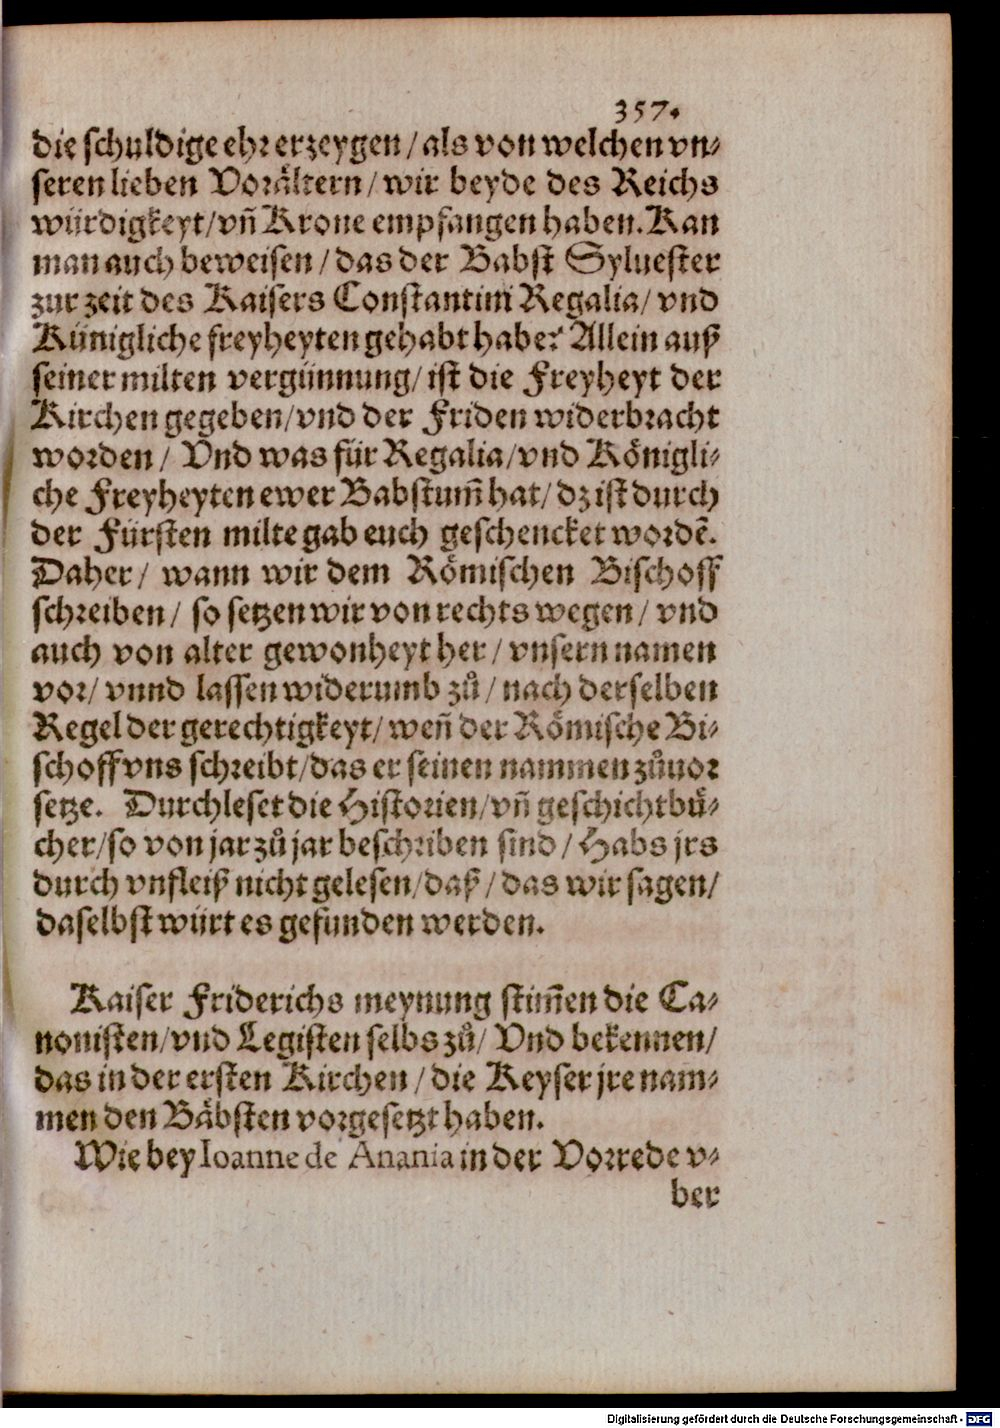 357.
die schuldige ehr erzeygen / als von welchen vn-
seren lieben Vorältern / wir beyde des Reichs
würdigkeyt / vñ Krone empfangen haben. Kan
man auch beweisen / das der Babst Syluester
zur zeit des Kaisers Constantini Regalia / vnd
Künigliche freyheyten gehabt habe? Allein auß
seiner milten vergünnung / ist die Freyheyt der
Kirchen gegeben / vnd der Friden widerbracht
worden / Vnd was für Regalia / vnd Königli-
che Freyheyten ewer Babstum̃ hat / dz ist durch
der Fürsten milte gab euch geschencket wordẽ.
Daher / wann wir dem Römischen Bischoff
schreiben / so setzen wir von rechts wegen / vnd
auch von alter gewonheyt her / vnsern namen
vor / vnnd lassen widerumb zů / nach derselben
Regel der gerechtigkeyt / weñ der Römische Bi-
schoff vns schreibt / das er seinen nammen zůuor
setze. Durchleset die Historien / vñ geschichtbü-
cher / so von jar zů jar beschriben sind / Habs jrs
durch vnfleiß nicht gelesen / daß / das wir sagen /
daselbst würt es gefunden werden.
Kaiser Friderichs meynung stim̃en die Ca-
nonisten / vnd Legisten selbs zů / Vnd bekennen /
das in der ersten Kirchen / die Keyser jre nam-
men den Bäbsten vorgesetzt haben.
Wie bey Ioanne de Anania in der Vorrede v-
ber
Digitalisierung gefördert durch die Deutsche Forschungsgemeinschaft - DFG